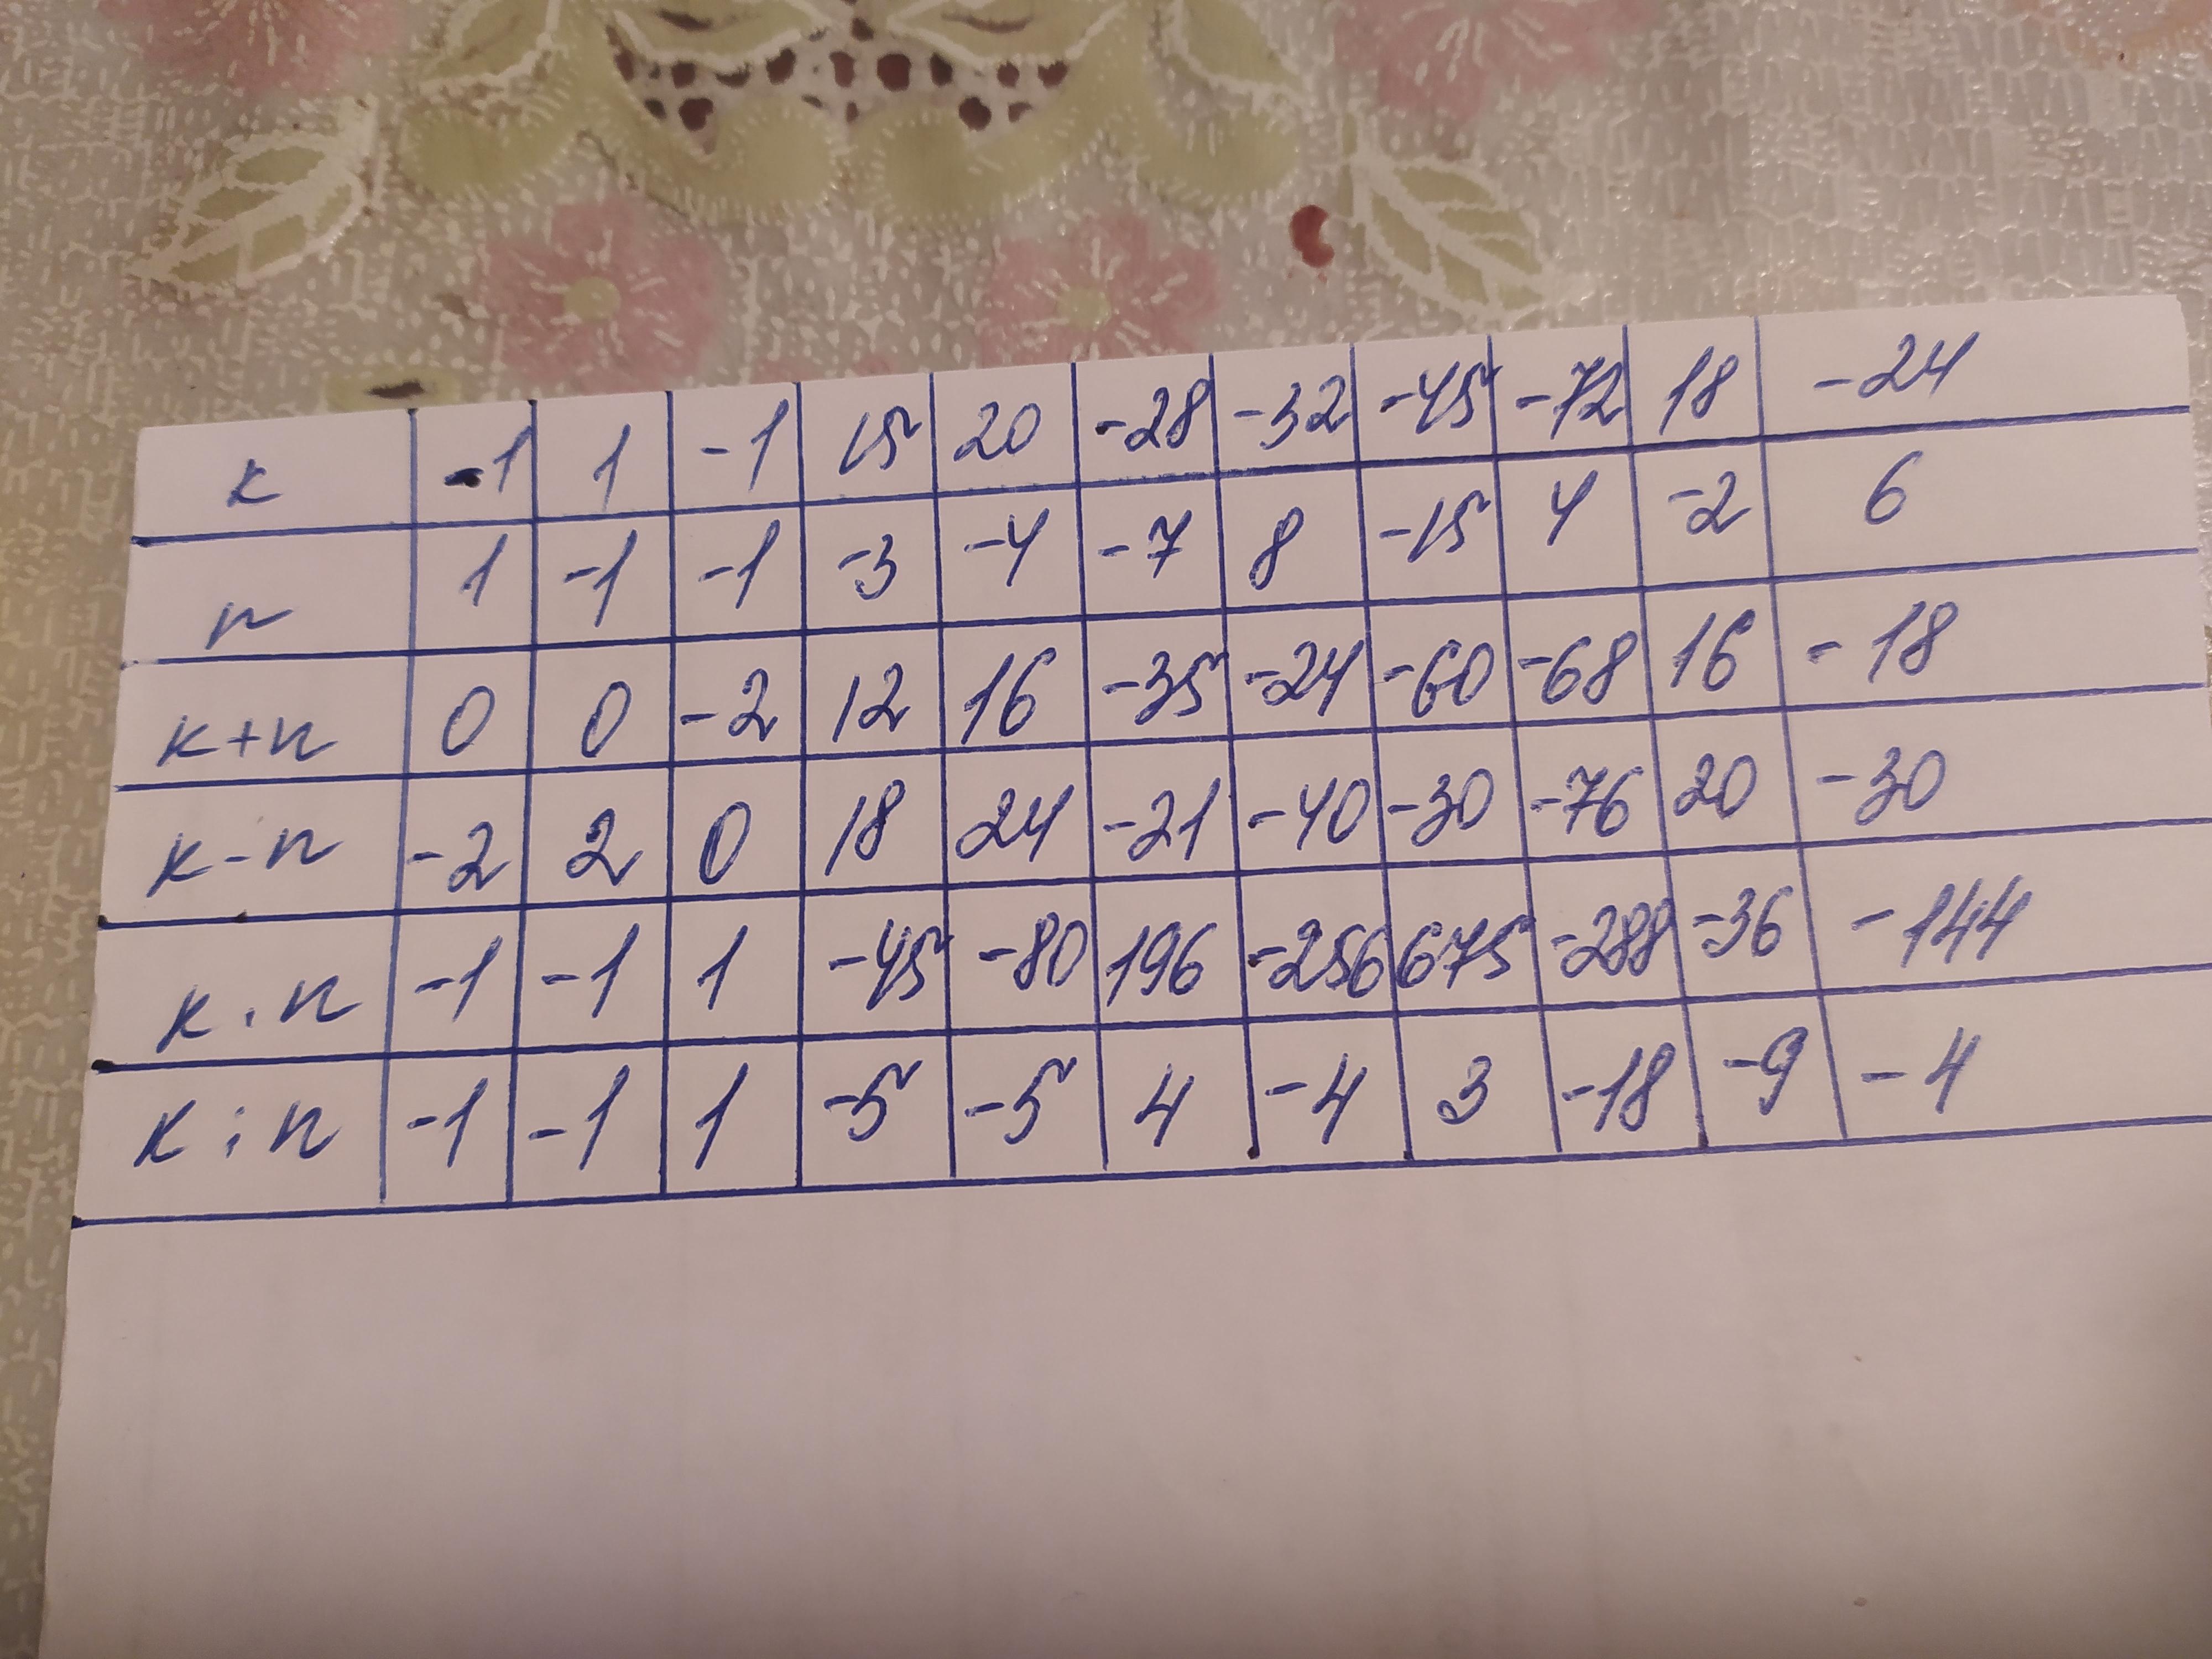 к -1 1 -1 15 20 -28 -32 -45 -72 18 -24
n 1 -1 -1 -3 -4 -7 8 -15 4 -2 6
к+n 0 0 -2 12 16 -35 -24 -60 -68 16 -18
к-n -2 2 0 18 24 -21 -40 -30 -76 20 -30
к·n -1 -1 1 -45 -80 196 -256 675 -288 -36 -144
к:n -1 -1 1 -5 -5 4 -4 3 -18 -9 -4